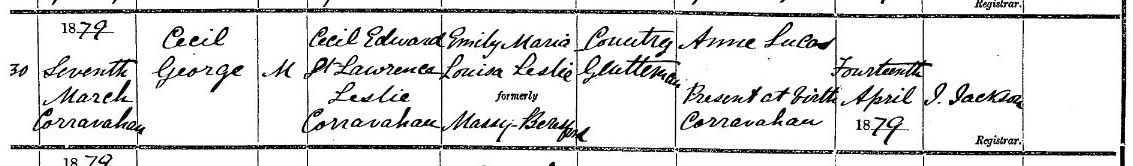 Registrar.
1879
30
Seventh
March
Corravahan
Cecil
George
M
Cecil Edward
St Lawrence
Leslie
Corravahan
Emily Maria
Louisa Leslie
formerly
Massy-Beresford
Country
Gentleman
Anne Lucas
Present at Birth
Corravahan
Fourteenth
April
1879
J. Jackson
Registrar.
1879